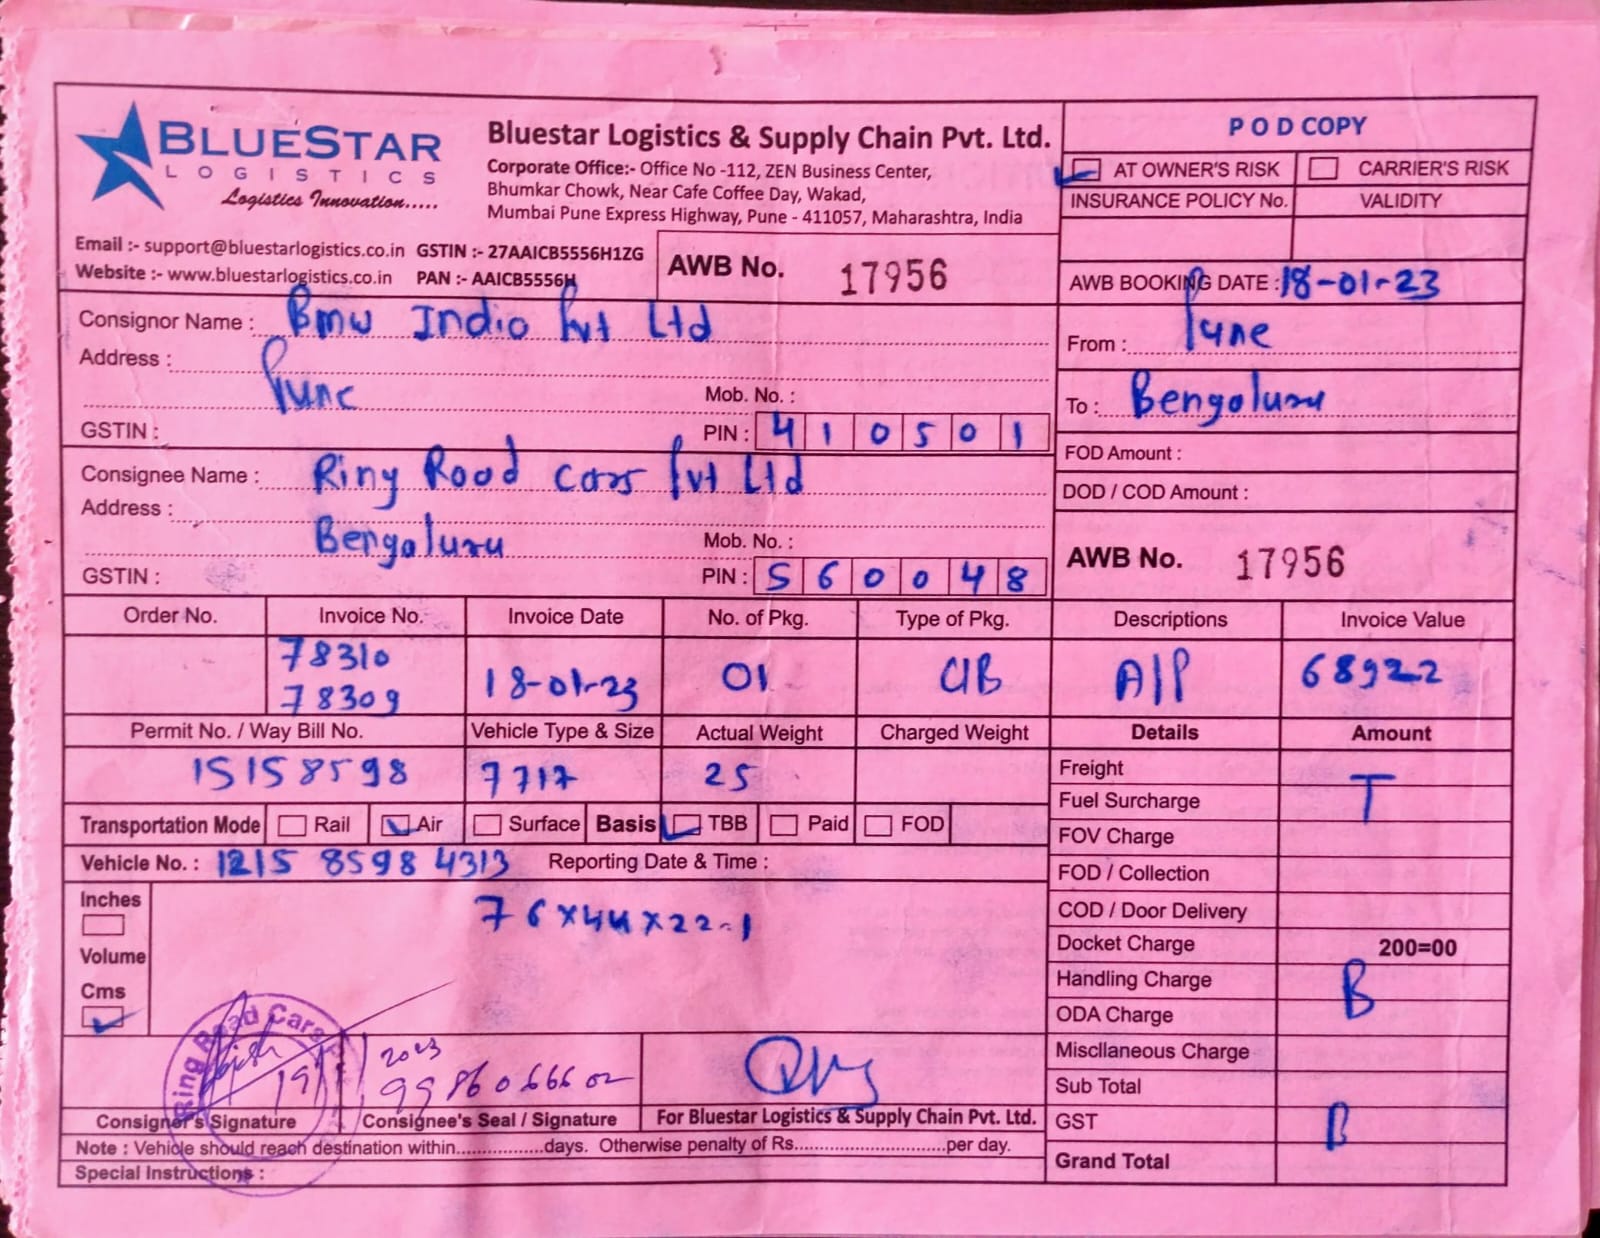 BLUESTAR
LOGISTICS
Logistics Innovation.....
Bluestar Logistics & Supply Chain Pvt. Ltd.
Corporate Office:- Office No -112, ZEN Business Center,
Bhumkar Chowk, Near Cafe Coffee Day, Wakad,
Mumbai Pune Express Highway, Pune - 411057, Maharashtra, India
Email :- support@bluestarlogistics.co.in GSTIN :- 27AAICB5556H1ZG
Website :- www.bluestarlogistics.co.in PAN :- AAICB5556H
AWB No. 17956
P O D COPY
AT OWNER'S RISK CARRIER'S RISK
INSURANCE POLICY No. VALIDITY
AWB BOOKING DATE : 18-01-23
Consignor Name : Bmw Indio Pvt Ltd
Address :
Pune
Mob. No. :
GSTIN : PIN : 410501
From : Pune
To : Bengaluru
FOD Amount :
DOD / COD Amount :
Consignee Name : Ring Road Cars Pvt Ltd
Address :
Bengaluru
Mob. No. :
GSTIN : PIN : 560048
AWB No. 17956
Order No. Invoice No. Invoice Date No. of Pkg. Type of Pkg. Descriptions Invoice Value
78310
78309 18-01-23 01 C/B A/P 68922
Permit No. / Way Bill No. Vehicle Type & Size Actual Weight Charged Weight Details Amount
15158598 7717 25
Transportation Mode Rail Air Surface Basis TBB Paid FOD
Vehicle No. : 1215 8598 4313 Reporting Date & Time :
Inches
Volume
Cms
76x44x22-1
Freight
T
Fuel Surcharge
FOV Charge
FOD / Collection
COD / Door Delivery
Docket Charge 200=00
Handling Charge
B
ODA Charge
Miscllaneous Charge
Sub Total
GST B
Grand Total
Ring Road Cars
19/1 2023
9986066602
Consigner's Signature Consignee's Seal / Signature For Bluestar Logistics & Supply Chain Pvt. Ltd.
Note : Vehicle should reach destination within.................days. Otherwise penalty of Rs.............................per day.
Special Instructions :